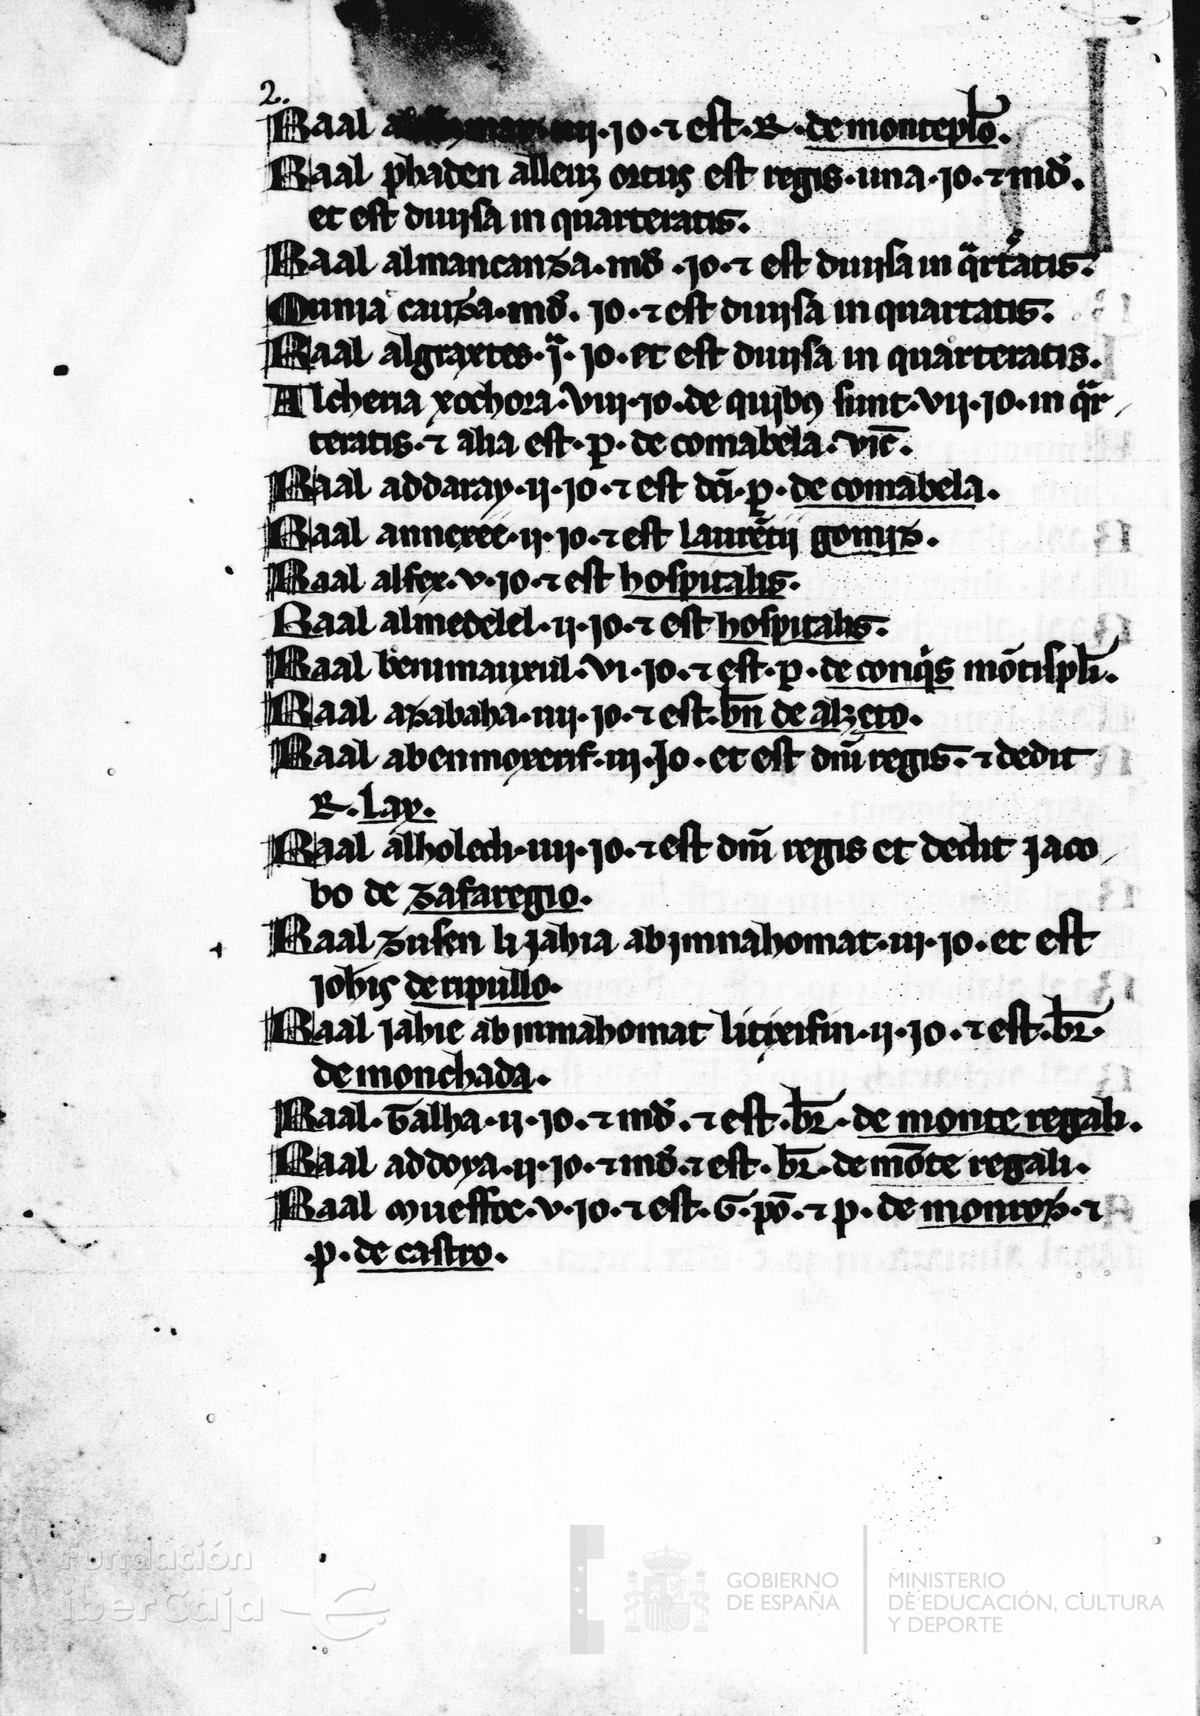 2.
Raal a iiii · Jo · ⁊ est · R · de montepl̄o.
Raal phaden alleuz ortus est regis · una · Jo · ⁊ md̄.
et est diuisa in quarteratis.
Raal almancanza · md̄ · Jo · ⁊ est diuisa in q̄rtatis.
Qunia cauza · md̄. Jo · ⁊ est diuisa in quartatis.
Raal algraxtes · ī · Jo · et est diuisa in quarteratis.
Alcheria xochora · viii · Jo · de quibus sunt · vii · Jo · in q̄r
teratis · ⁊ alia est · p · de comabela · vic̄.
Raal addaray · ii · Jo · ⁊ est dc̄i · p · de comabela.
Raal annexee · ii · Jo · ⁊ est laurētii gomiz.
Raal alfex · v · Jo · ⁊ est hospitalis.
Raal almedelel · ii · Jo · ⁊ est hospitalis.
Raal benimaurul · vi · Jo · ⁊ est · p · de conq̄s mōtispl̄i.
Raal azabaha · iiii · Jo · ⁊ est · bn̄ de alzeto.
Raal abenmoxerif · iii · Jo · et est dn̄i regis · ⁊ dedit
R · Lay.
Raal alholech · iiii · Jo · ⁊ est dn̄i regis et dedit Jaco
bo de zafaregio.
Raal zusen li Jahia abinnahomat · iii · Jo · et est
Johis de ripullo.
Raal Jahie abinmahomat litixifin · ii · Jo · ⁊ est · br̄ ·
de monchada.
Raal · Galha · ii · Jo · ⁊ md̄ · ⁊ est · br̄ · de monte regali.
Raal addoya · ii · Jo · ⁊ md̄ · ⁊ est · br̄ · de mōte regali.
Raal mueffoc · v · Jo · ⁊ est · G · pō · ⁊ p · de montoz · ⁊
· p · de castro.
Fundación
iberCaja
GOBIERNO
DE ESPAÑA
MINISTERIO
DE EDUCACIÓN, CULTURA
Y DEPORTE